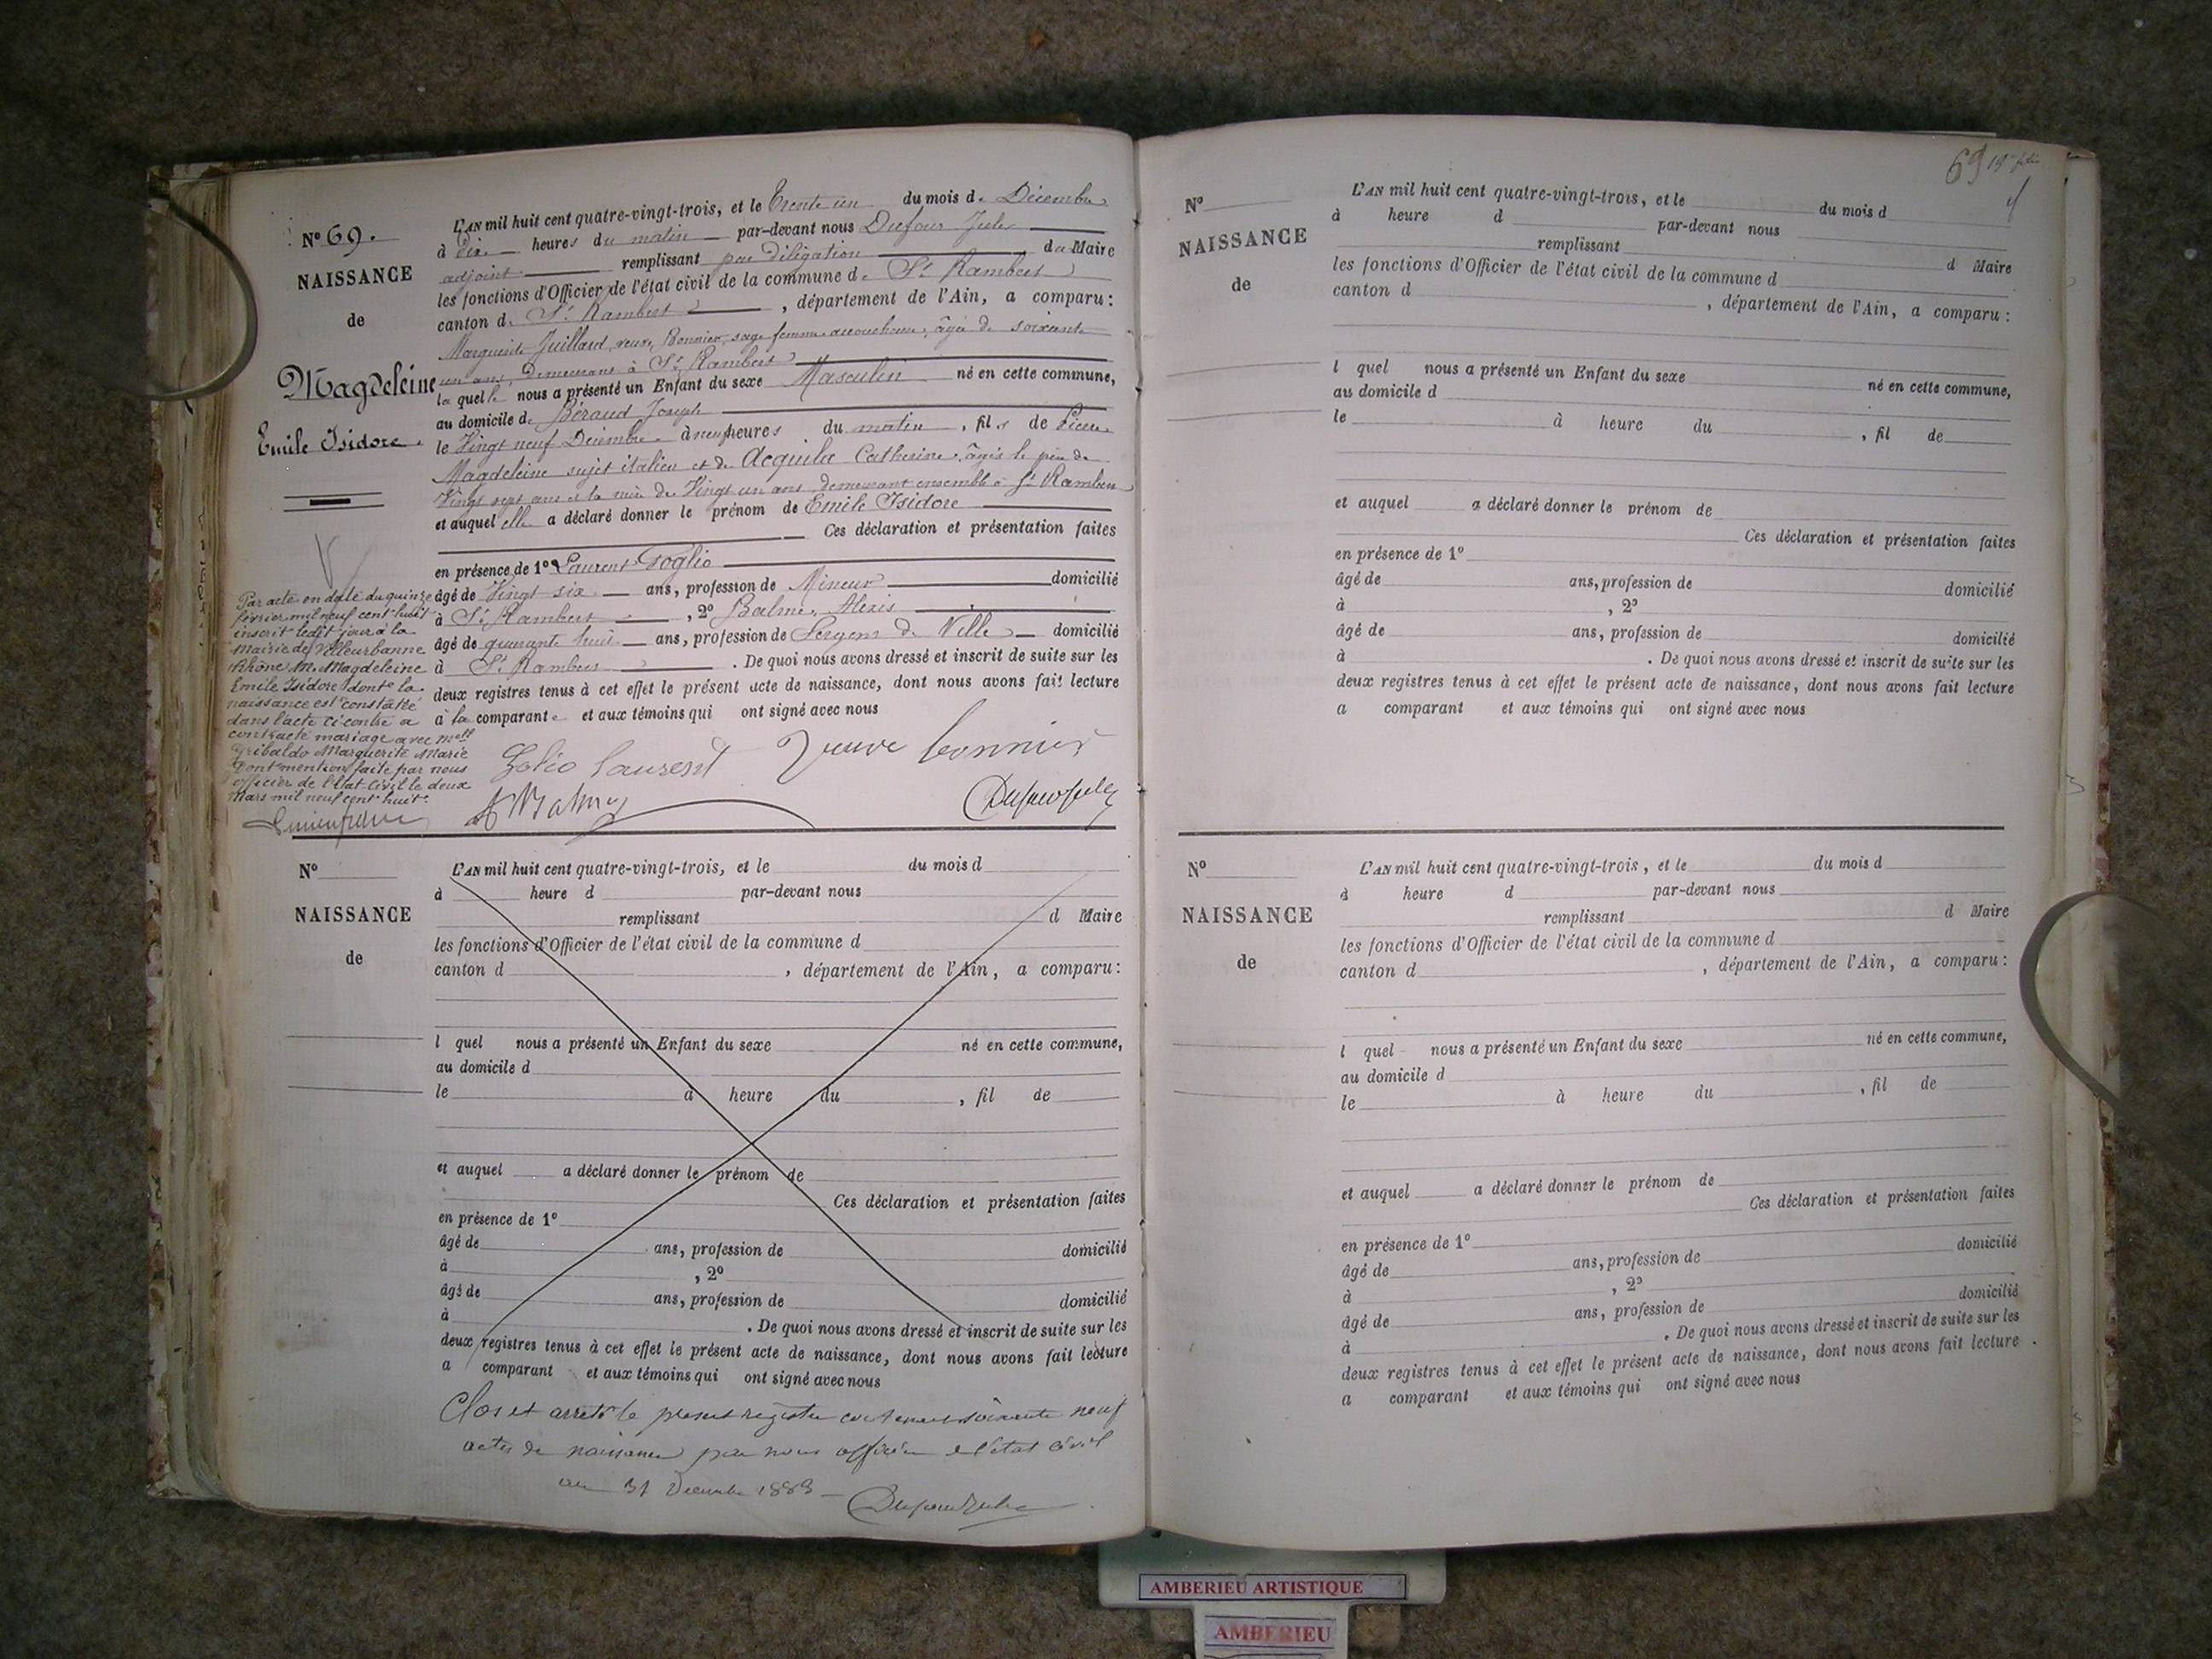 N° 69.
NAISSANCE
de
Magdeleine
Emile Isidore.
L'AN mil huit cent quatre-vingt-trois, et le Trente un du mois de Décembre
à dix heures du matin par-devant nous Dufour Jules
adjoint remplissant par délégation du Maire
les fonctions d'Officier de l'état civil de la commune de St Rambert
canton de St Rambert, département de l'Ain, a comparu:
Marguerite Juillard, veuve Bonnier, sage femme accoucheuse, âgée de soixante
un ans, demeurant à St Rambert
la quelle nous a présenté un Enfant du sexe Masculin né en cette commune,
au domicile de Béraud Joseph
le Vingt neuf Décembre à neuf heures du matin, fils de Pierre
Magdeleine sujet italien et de Acquila Catherine, âgés le père de
Vingt sept ans et la mère de Vingt un ans demeurant ensemble à St Rambert
et auquel elle a déclaré donner le prénom de Emile Isidore
Ces déclaration et présentation faites
en présence de 1° Laurent Goglio
âgé de Vingt six ans, profession de Mineur domicilié
à St Rambert, 2° Balme, Alexis
âgé de quarante huit ans, profession de Sergent de Ville domicilié
à St Rambert. De quoi nous avons dressé et inscrit de suite sur les
deux registres tenus à cet effet le présent acte de naissance, dont nous avons fait lecture
à la comparante et aux témoins qui ont signé avec nous
Veuve bonnier
Par acte en date du quinze
février mil neuf cent huit
inscrit ledit jour à la
Mairie de Villeurbanne
Rhône M. Magdeleine
Emile Isidore dont la
naissance est constatée
dans l'acte ci-contre a
contracté mariage avec Melle
Gribaldo Marguerite Marie
Dont mention faite par nous
officier de l'Etat-Civil le deux
Mars mil neuf cent huit.
N°
NAISSANCE
de
L'AN mil huit cent quatre-vingt-trois, et le du mois d
à heure d par-devant nous
remplissant d Maire
les fonctions d'Officier de l'état civil de la commune d
canton d , département de l'Ain, a comparu:
l quel nous a présenté un Enfant du sexe né en cette commune,
au domicile d
le à heure du , fil de
et auquel a déclaré donner le prénom de
Ces déclaration et présentation faites
en présence de 1°
âgé de ans, profession de domicilié
à , 2°
âgé de ans, profession de domicilié
à . De quoi nous avons dressé et inscrit de suite sur les
deux registres tenus à cet effet le présent acte de naissance, dont nous avons fait lecture
a comparant et aux témoins qui ont signé avec nous
Clos et arrêté le présent registre contenant soixante neuf
actes de naissance par nous officier de l'état civil
au 31 Décembre 1883
69
N°
NAISSANCE
de
L'AN mil huit cent quatre-vingt-trois, et le du mois d
à heure d par-devant nous
remplissant d Maire
les fonctions d'Officier de l'état civil de la commune d
canton d , département de l'Ain, a comparu:
l quel nous a présenté un Enfant du sexe né en cette commune,
au domicile d
le à heure du , fil de
et auquel a déclaré donner le prénom de
Ces déclaration et présentation faites
en présence de 1°
âgé de ans, profession de domicilié
à , 2°
âgé de ans, profession de domicilié
à . De quoi nous avons dressé et inscrit de suite sur les
deux registres tenus à cet effet le présent acte de naissance, dont nous avons fait lecture
a comparant et aux témoins qui ont signé avec nous
N°
NAISSANCE
de
L'AN mil huit cent quatre-vingt-trois, et le du mois d
à heure d par-devant nous
remplissant d Maire
les fonctions d'Officier de l'état civil de la commune d
canton d , département de l'Ain, a comparu:
l quel nous a présenté un Enfant du sexe né en cette commune,
au domicile d
le à heure du , fil de
et auquel a déclaré donner le prénom de
Ces déclaration et présentation faites
en présence de 1°
âgé de ans, profession de domicilié
à , 2°
âgé de ans, profession de domicilié
à . De quoi nous avons dressé et inscrit de suite sur les
deux registres tenus à cet effet le présent acte de naissance, dont nous avons fait lecture
a comparant et aux témoins qui ont signé avec nous
AMBERIEU ARTISTIQUE
AMBERIEU